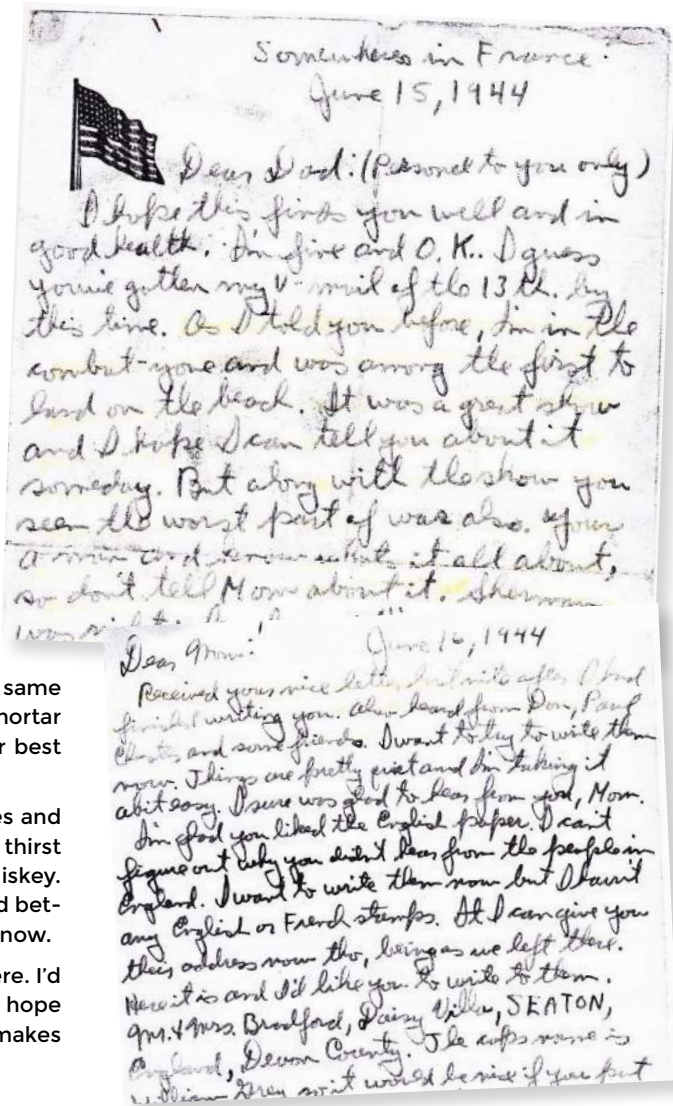 Somewheres in France.
June 15, 1944
Dear Dad: (Personel to you only)
I hope this finds you well and in
good health. I'm fine and O.K.. I guess
you've gotten my V-mail of the 13th. by
this time. As I told you before, I'm in the
combat-zone and was among the first to
land on the beach. It was a great show
and I hope I can tell you about it
someday. But along with the show you
seen the worst part of war also. Your
a man and know what it all about,
so don't tell Mom about it. Sherman
was right.
same
mortar
r best
es and
thirst
iskey.
d bet-
now.
ere. I'd
hope
makes
Dear Mom: June 16, 1944
Received your nice letter last nite after I had
finished writing you. Also heard from Don, Paul
and some friends. I want to try to write them
now. Things are pretty quiet and I'm taking it
a bit easy. I sure was glad to hear from you, Mom.
I'm glad you liked the English paper. I can't
figure out why you didn't hear from the people in
England. I want to write them now but I havn't
any English or French stamps. I can give you
their address now tho, being as we left there.
Here it is and I'd like you to write to them.
Mr. & Mrs. Bradford, Daisy Villa, SEATON,
England, Devon County. The name is
William Grey so it would be nice if you put